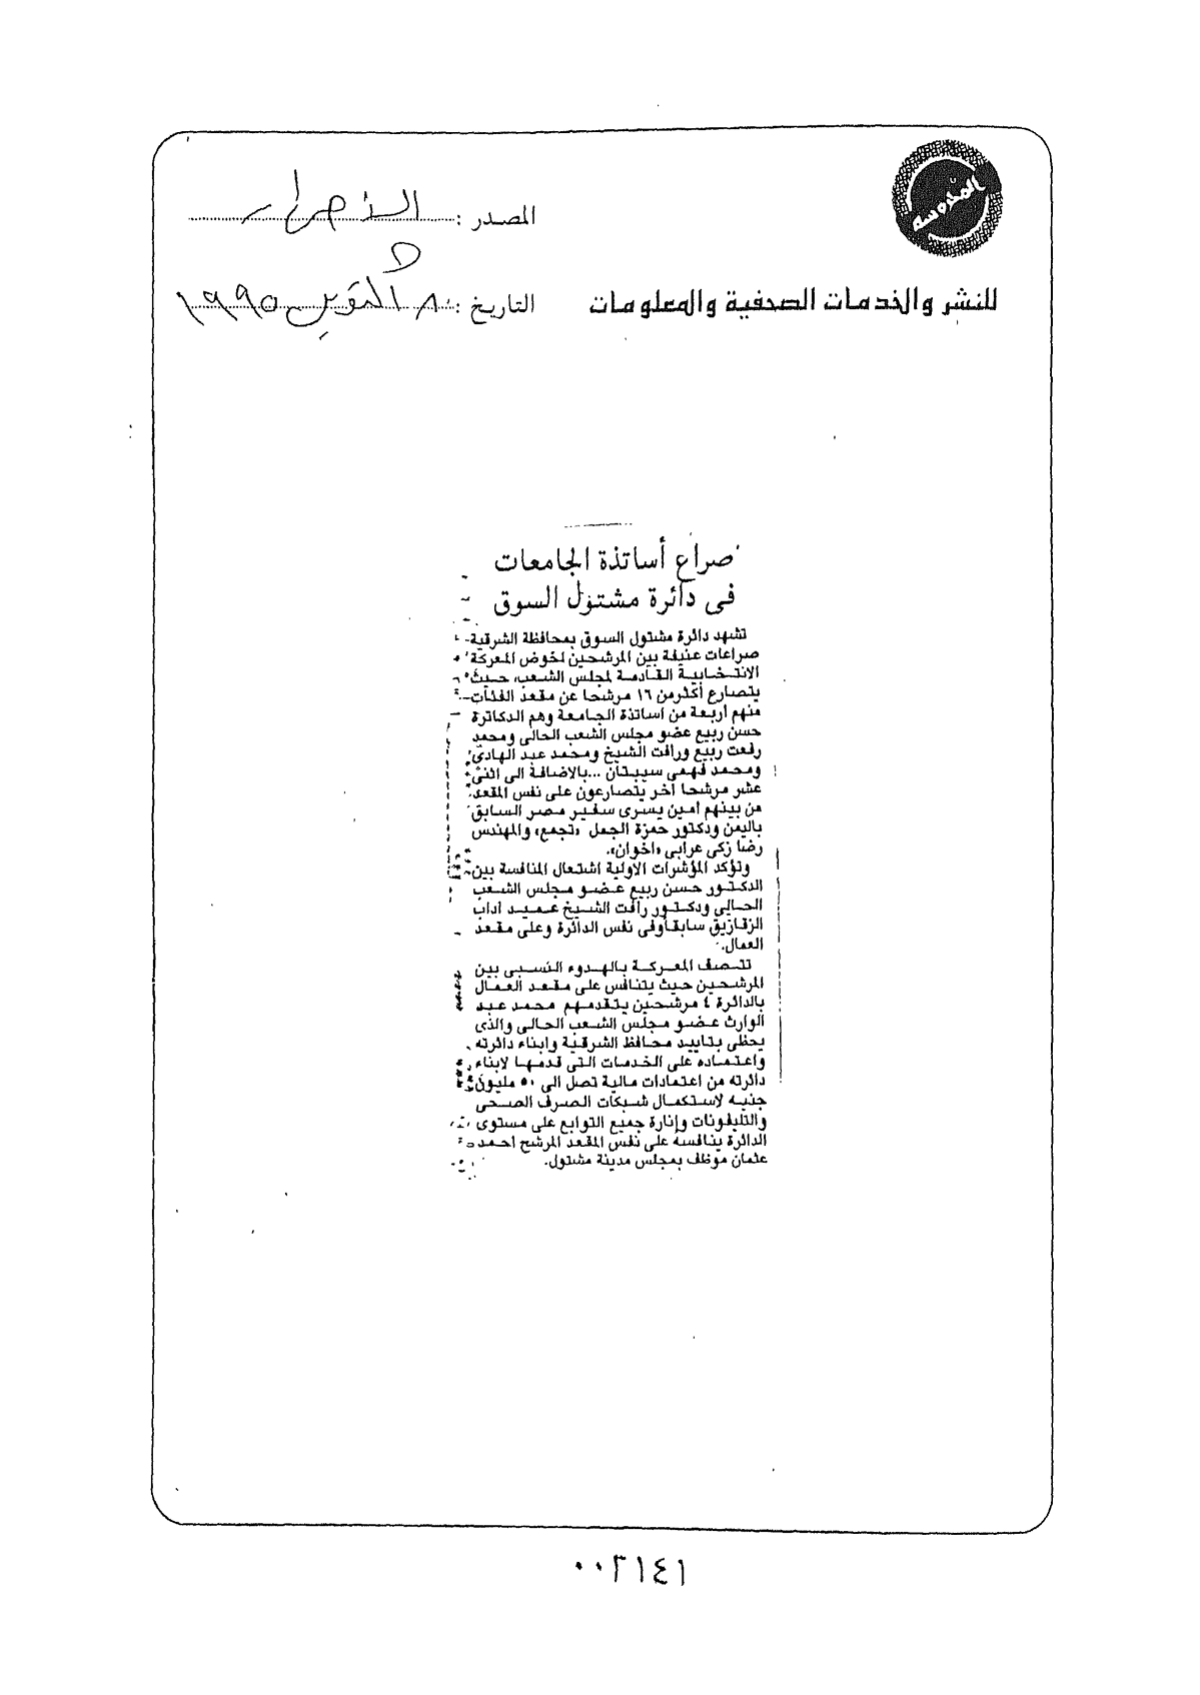 المدوسه
المصدر :
التاريخ : ١٩٩٥
للنشر والخدمات الصحفية والمعلومات
صراع أساتذة الجامعات
فى دائرة مشتول السوق
تشهد دائرة مشتول السوق بمحافظة الشرقية
صراعات عنيفة بين المرشحين لخوض المعركة
الانتخابية القادمة لمجلس الشعب، حيث
يتصارع أكثر من ١٦ مرشحا عن مقعد الفئات
منهم اربعة من اساتذة الجامعة وهم الدكاترة
حسن ربيع عضو مجلس الشعب الحالى ومحمد
رفعت ربيع ورافت الشيخ ومحمد عبد الهادى
ومحمد فهمى سيبتان ...بالاضافة الى اثنى
عشر مرشحا آخر يتصارعون على نفس المقعد
من بينهم امين يسرى سفير مصر السابق
باليمن ودكتور حمزة الجمل «تجمع» والمهندس
رضا زكى عرابى «اخوان».
وتؤكد المؤشرات الاولية اشتعال المنافسة بين
الدكتور حسن ربيع عضو مجلس الشعب
الحالى ودكتور رافت الشيخ عميد آداب
الزقازيق سابقا وفى نفس الدائرة وعلى مقعد
العمال.
تتصف المعركة بالهدوء النسبى بين
المرشحين حيث يتنافس على مقعد العمال
بالدائرة ٤ مرشحين يتقدمهم محمد عبد
الوارث عضو مجلس الشعب الحالى والذى
يحظى بتاييد محافظ الشرقية وابناء دائرته
واعتماده على الخدمات التى قدمها لابناء
دائرته من اعتمادات مالية تصل الى ٥٠ مليون
جنيه لاستكمال شبكات الصرف الصحى
والتليفونات وإنارة جميع التوابع على مستوى
الدائرة ينافسه على نفس المقعد المرشح احمد
عثمان موظف بمجلس مدينة مشتول.
٠٠٢١٤١